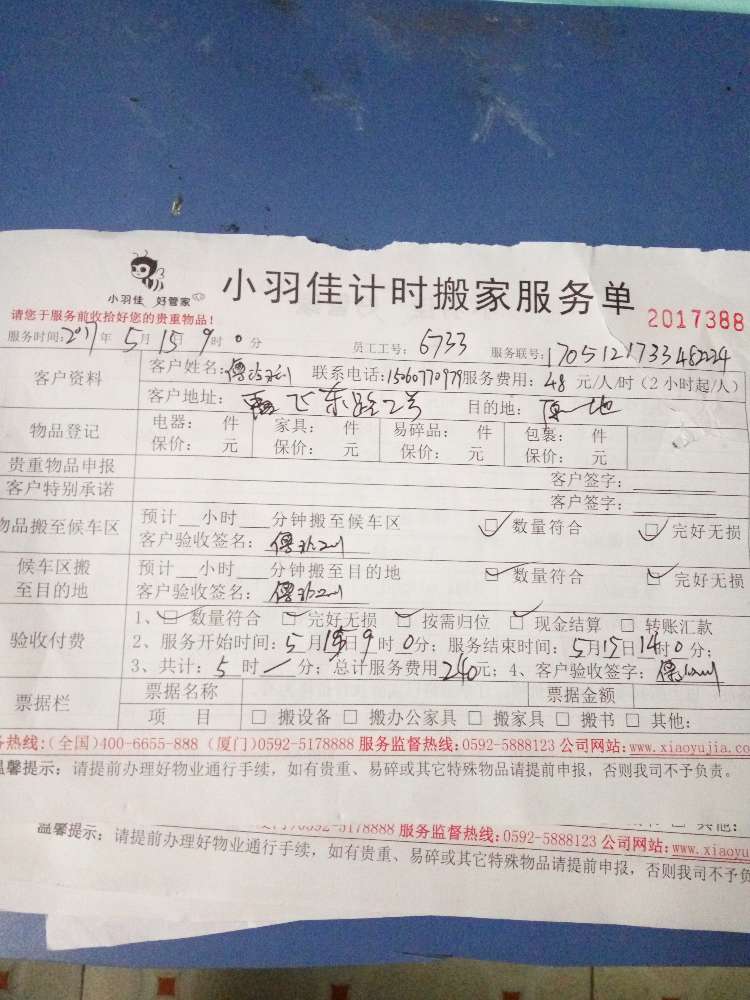 小羽佳 好管家
小羽佳计时搬家服务单
2017388
请您于服务前收拾好您的贵重物品!
服务时间:2017年 5月 15日 9时 0分 员工工号: 6733 服务联号:
客户资料 客户姓名: 联系电话:15060770979 服务费用: 48 元/人/时 (2小时起/人)
客户地址: 飞东路2号 目的地:
物品登记 电器: 件 家具: 件 易碎品: 件 包裹: 件
保价: 元 保价: 元 保价: 元 保价: 元
贵重物品申报 客户签字:
客户特别承诺 客户签字:
物品搬至候车区 预计__小时__分钟搬至候车区 数量符合 完好无损
客户验收签名:
候车区搬至目的地 预计__小时__分钟搬至目的地 数量符合 完好无损
客户验收签名:
验收付费 1、数量符合 完好无损 按需归位 现金结算 转账汇款
2、服务开始时间: 5月15日 9时 0分; 服务结束时间: 5月15日14时0分;
3、共计: 5 时 / 分; 总计服务费用240元; 4、客户验收签字:
票据栏 票据名称 票据金额
项 目 □ 搬设备 □ 搬办公家具 □ 搬家具 □ 搬书 □ 其他:
热线:(全国)400-6655-888 (厦门)0592-5178888 服务监督热线:0592-5888123 公司网站:www.xiaoyujia.co
温馨提示: 请提前办理好物业通行手续, 如有贵重、易碎或其它特殊物品请提前申报, 否则我司不予负责。
0592-5178888 服务监督热线:0592-5888123 公司网站:www.xiaoyu
温馨提示: 请提前办理好物业通行手续, 如有贵重、易碎或其它特殊物品请提前申报, 否则我司不予负